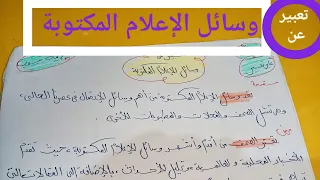 تعبير
عن
وسائل الإعلام المكتوبة
وسائل الإعلام المكتوبة
تعتبر وسائل الإعلام المكتوبة من أهم وسائل الإتصال في عصرنا الحالي،
وهي تشمل الصحف والمجلات والمطبوعات الأخرى
تعتبر الصحف من أقدم وأشهر وسائل للإعلام المكتوبة، حيث تقدم
الأخبار المحلية والعالمية وتحليل للأحداث، بالإضافة إلى المقالات التي